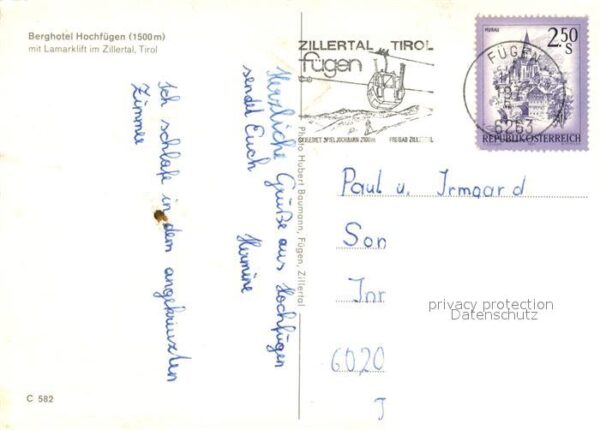 Berghotel Hochfügen (1500 m)
mit Lamarklift im Zillertal, Tirol
Herzliche Grüße aus Hochfügen
sendet Euch
Hermine
Ich schlafe in dem angekreuzten
Zimmer
C 582
Photo Hubert Baumann, Fügen, Zillertal
ZILLERTAL TIROL
fügen
MURAU
2.50
S
REPUBLIK ÖSTERREICH
FÜGEN
Paul u. Irmgard
Son
Inr
6020
privacy protection
Datenschutz